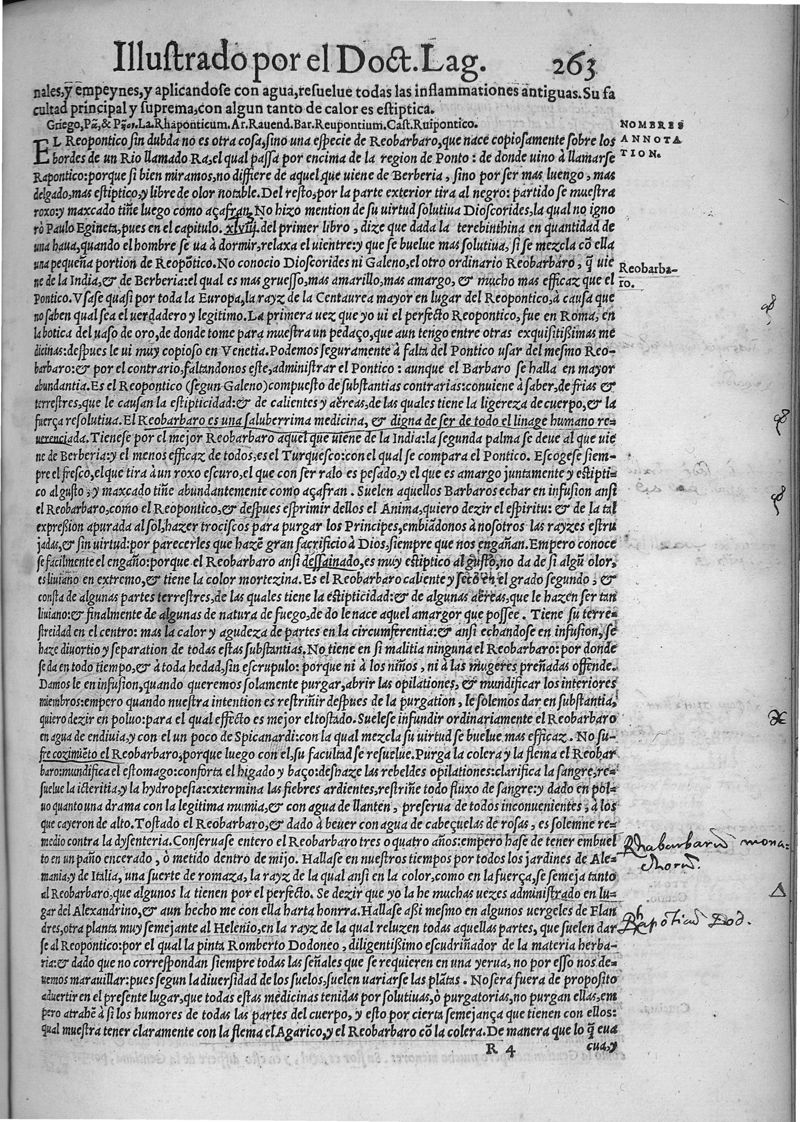 Illustrado por el Doct. Lag. 263
nales, y empeynes, y aplicandose con agua, resuelue todas las inflammationes antiguas. Su fa
cultad principal y suprema, con algun tanto de calor es estiptica.
Griego, Pᾶ, & Pῆον. La. Rhaponticum. Ar. Rauend. Bar. Reupontium. Cast. Ruipontico.
NOMBRES
EL Reopontico sin dubda no es otra cosa, sino una especie de Reobarbaro, que nace copiosamente sobre los
ANNOTA
bordes de un Rio llamado Ra, el qual passa por encima de la region de Ponto: de donde uino à llamarse
TION.
Rapontico: porque si bien miramos, no differe de aquel que uiene de Berberia, sino por ser mas luengo, mas
delgado, mas estiptico, y libre de olor notable. Del resto, por la parte exterior tira al negro: partido se muestra
roxo: y maxcado tiñe luego como açafran. No hizo mention de su uirtud solutiua Dioscorides, la qual no igno
rò Paulo Egineta, pues en el capitulo. xlviij. del primer libro, dize que dada la terebinthina en quantidad de
una haua, quando el hombre se ua à dormir, relaxa el uientre: y que se buelue mas solutiua, si se mezcla cõ ella
una pequeña portion de Reopõtico. No conocio Dioscorides ni Galeno, el otro ordinario Reobarbaro, q̃ uie
Reobarba-
ne de la India, & de Berberia: el qual es mas gruesso, mas amarillo, mas amargo, & mucho mas efficaz que el
ro.
Pontico. Vsase quasi por toda la Europa, la rayz de la Centaurea mayor en lugar del Reopontico, à causa que
no saben qual sea el uerdadero y legitimo. La primera uez que yo ui el perfecto Reopontico, fue en Roma, en
la botica del uaso de oro, de donde tome para muestra un pedaço, que aun tengo entre otras exquisitißimas me
dicinas: despues le ui muy copioso en Venetia. Podemos seguramente à falta del Pontico usar del mesmo Reo-
barbaro: & por el contrario, faltandonos este, administrar el Pontico: aunque el Barbaro se halla en mayor
abundantia. Es el Reopontico (segun Galeno) compuesto de substantias contrarias: conuiene à saber, de frias &
terrestres, que le causan la estipticidad: & de calientes y aëreas, de las quales tiene la ligereza de cuerpo, & la
fuerça resolutiua. El Reobarbaro es una saluberrima medicina, & digna de ser de todo el linage humano re-
uerenciada. Tienese por el mejor Reobarbaro aquel que uiene de la India: la segunda palma se deue al que uie
ne de Berberia: y el menos efficaz de todos, es el Turquesco: con el qual se compara el Pontico. Escogese siem-
pre el fresco, el que tira à un roxo escuro, el que con ser ralo es pesado, y el que es amargo juntamente y estipti-
co al gusto, y maxcado tiñe abundantemente como açafran. Suelen aquellos Barbaros echar en infusion ansi
el Reobarbaro, como el Reopontico, & despues esprimir dellos el Anima, quiero dezir el espiritu: & de la tal
expreßion apurada al sol, hazer trociscos para purgar los Principes, embiandonos à nosotros las rayzes estru
jadas, & sin uirtud: por parecerles que hazẽ gran sacrificio à Dios, siempre que nos engañan. Empero conoce
se facilmente el engaño: porque el Reobarbaro ansi dessainado, es muy estiptico al gusto, no da de si algũ olor,
es liuiano en extremo, & tiene la color mortezina. Es el Reobarbaro caliente y seco en el grado segundo, &
consta de algunas partes terrestres, de las quales tiene la estipticidad: & de algunas aëreas, que le hazen ser tan
liuiano: & finalmente de algunas de natura de fuego, de do le nace aquel amargor que possee. Tiene su terre-
streidad en el centro: mas la calor y agudeza de partes en la circumferentia: & ansi echandose en infusion, se
haze diuortio y separation de todas estas substantias. No tiene en si malitia ninguna el Reobarbaro: por donde
se da en todo tiempo, & à toda hedad, sin escrupulo: porque ni à los niños, ni à las mugeres preñadas offende.
Damos le en infusion, quando queremos solamente purgar, abrir las opilationes, & mundificar los interiores
miembros: empero quando nuestra intention es restriñir despues de la purgation, le solemos dar en substantia,
quiero dezir en poluo: para el qual effecto es mejor el tostado. Suelese infundir ordinariamente el Reobarbaro
en agua de endiuia, y con el un poco de Spicanardi: con la qual mezcla su uirtud se buelue mas efficaz. No su-
fre cozimiẽto el Reobarbaro, porque luego con el, su facultad se resuelue. Purga la colera y la flema el Reobar
baro: mundifica el estomago: conforta el higado y baço: deshaze las rebeldes opilationes: clarifica la sangre, re-
suelue la icteritia, y la hydropesia: extermina las fiebres ardientes, restriñe todo fluxo de sangre: y dado en pol-
uo quanto una drama con la legitima mumia, & con agua de llanten, preserua de todos inconuenientes, à los
que cayeron de alto. Tostado el Reobarbaro, & dado à beuer con agua de cabeçuelas de rosas, es solemne re-
medio contra la dysenteria. Conseruase entero el Reobarbaro tres o quatro años: empero hase de tener embuel
Rhabarbarũ mona-
to en un paño encerado, ò metido dentro de mijo. Hallase en nuestros tiempos por todos los jardines de Ale-
chorũ.
mania, y de Italia, una suerte de romaza, la rayz de la qual ansi en la color, como en la fuerça, se semeja tanto
al Reobarbaro, que algunos la tienen por el perfecto. Se dezir que yo la he muchas uezes administrado en lu-
gar del Alexandrino, & aun hecho me con ella harta honrra. Hallase aßi mesmo en algunos uergeles de Flan
Rhepõticũ Dod.
dres, otra planta muy semejante al Helenio, en la rayz de la qual reluzen todas aquellas partes, que suelen dar
se al Reopontico: por el qual la pinta Romberto Dodoneo, diligentißimo escudriñador de la materia herba-
ria: & dado que no correspondan siempre todas las señales que se requieren en una yerua, no por esso nos de-
uemos marauillar: pues segun la diuersidad de los suelos, suelen uariarse las plãtas. No sera fuera de proposito
aduertir en el presente lugar, que todas estas medicinas tenidas por solutiuas, ò purgatorias, no purgan ellas, em
pero atrahẽ à si los humores de todas las partes del cuerpo, y esto por cierta semejança que tienen con ellos:
qual muestra tener claramente con la flema el Agarico, y el Reobarbaro cõ la colera. De manera que lo q̃ eua
R 4 cua, y